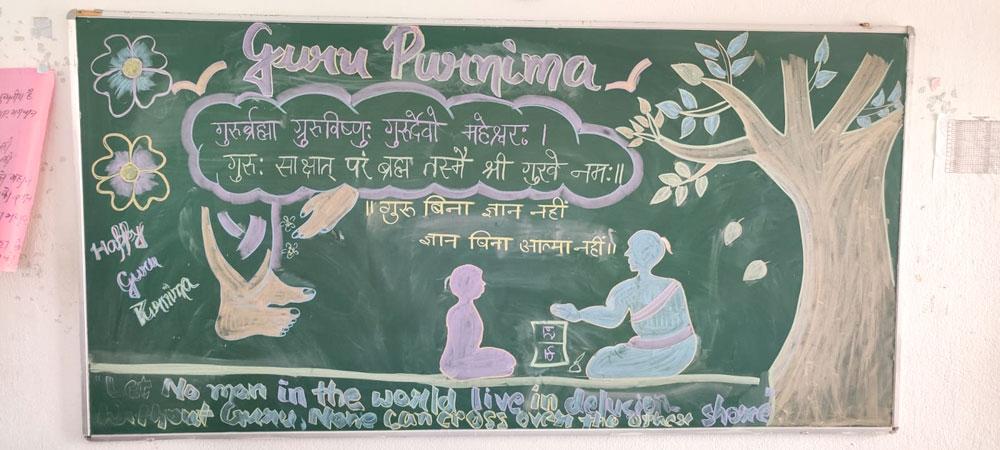 Guru Purnima
गुरुर्ब्रह्मा गुरुर्विष्णुः गुरुर्देवो महेश्वरः ।
गुरुः साक्षात् परं ब्रह्म तस्मै श्री गुरवे नमः॥
॥ गुरु बिना ज्ञान नहीं
ज्ञान बिना आत्मा नहीं॥
Happy
Guru
Purnima
"Let No man in the world live in delusion.
Without Guru, None Can cross over the other shore"